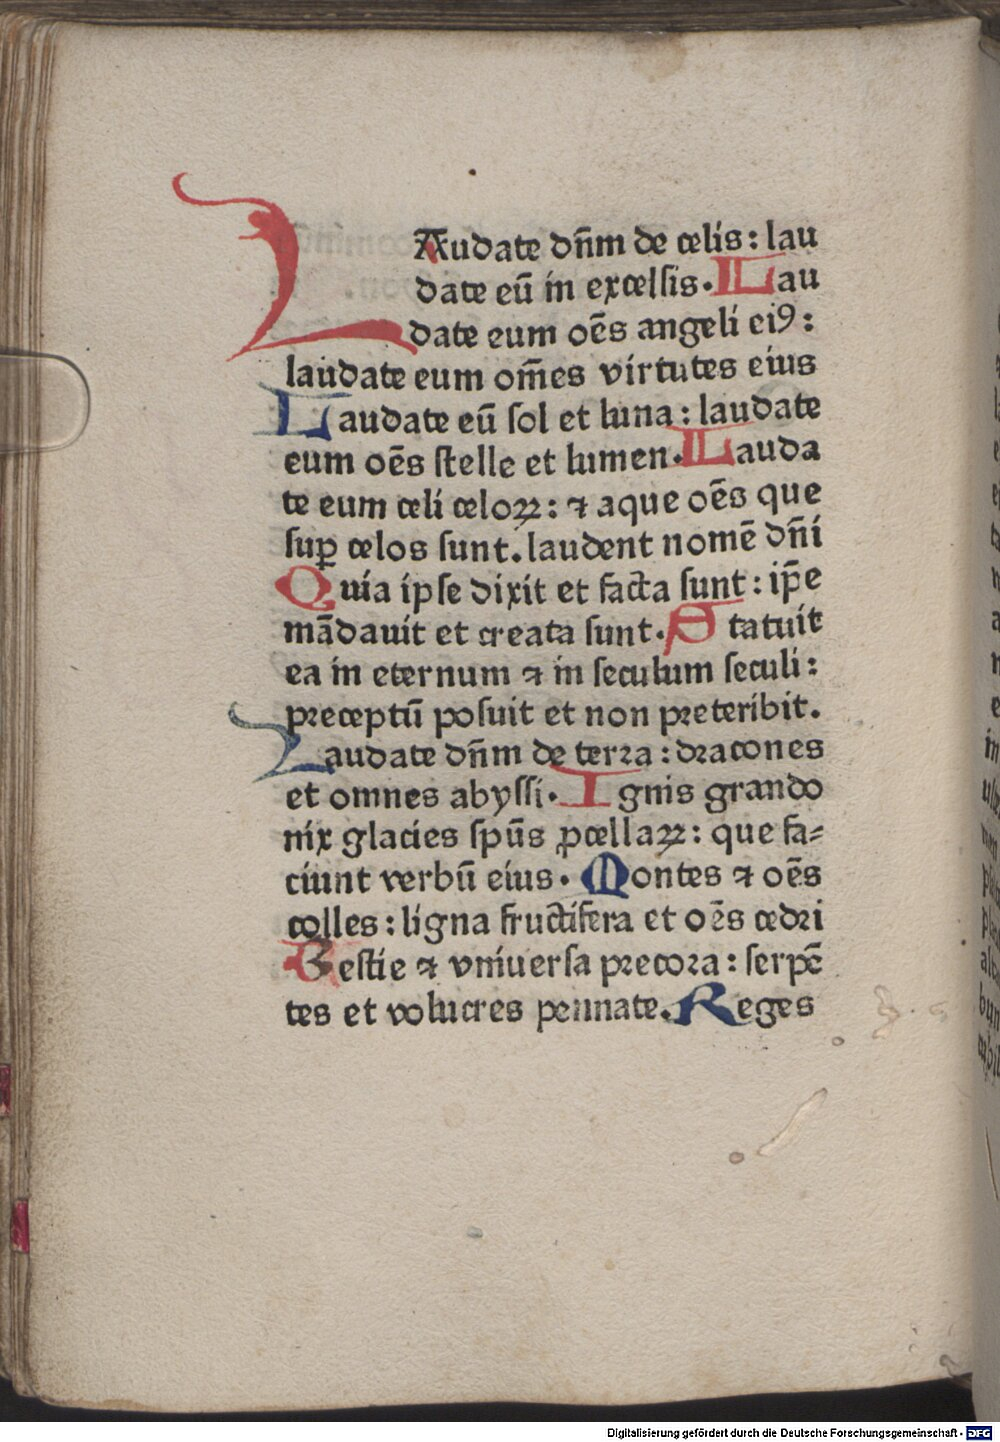 LAudate dn̄m de celis: lau
date eū in excelsis. Lau
date eum oēs angeli eiꝰ:
laudate eum om̄es virtutes eius
Laudate eū sol et luna: laudate
eum oēs stelle et lumen. Lauda
te eum celi celoꝝ: ⁊ aque oēs que
suꝑ celos sunt. laudent nomē dn̄i
Quia ipse dixit et facta sunt: ip̄e
mādauit et creata sunt. Statuit
ea in eternum ⁊ in seculum seculi:
preceptū posuit et non preteribit.
Laudate dn̄m de terra: dracones
et omnes abyssi. Ignis grando
nix glacies spūs ꝓcellaꝝ: que fa-
ciunt verbū eius. Montes ⁊ oēs
colles: ligna fructifera et oēs cedri
Bestie ⁊ vniuersa precora: serpē
tes et volucres pennate. Reges
Digitalisierung gefördert durch die Deutsche Forschungsgemeinschaft - DFG